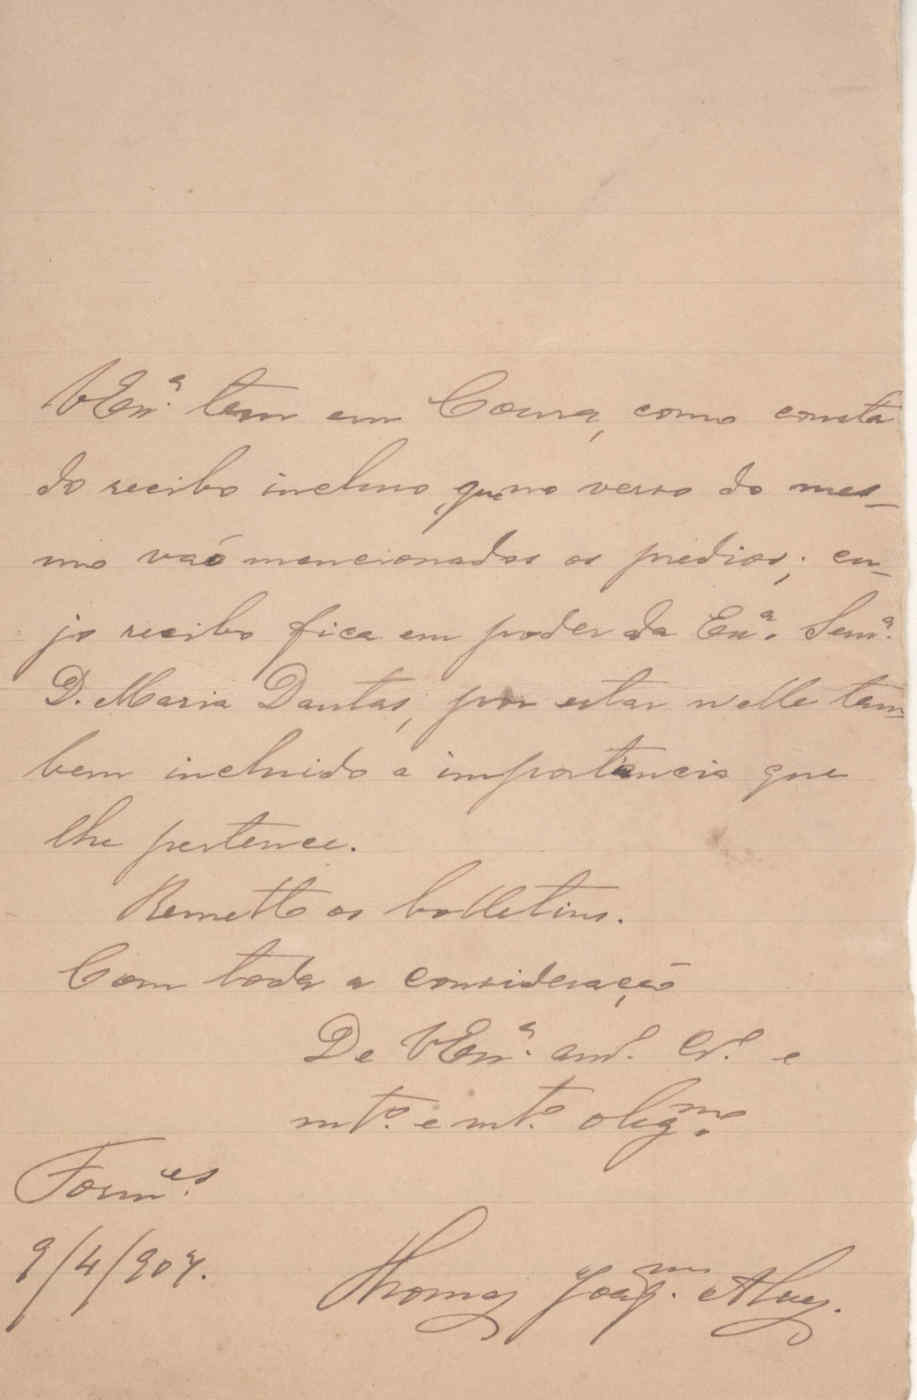 VExª. tem em Coura, como consta
do recibo incluso, que no verso do mes-
mo vaõ mencionados os predios; cu-
jo recibo fica em poder da Exª. Senrª.
D. Maria Dantas, por estar n'elle tam-
bem incluido a importancia que
lhe pertence.
Remetto os bolletins.
Com toda a consideração
De VExª. amº. crº. e
mtº. e mtº. obigmo.
Formes.
9/4/907.
Thomaz Joaqm. Alves.